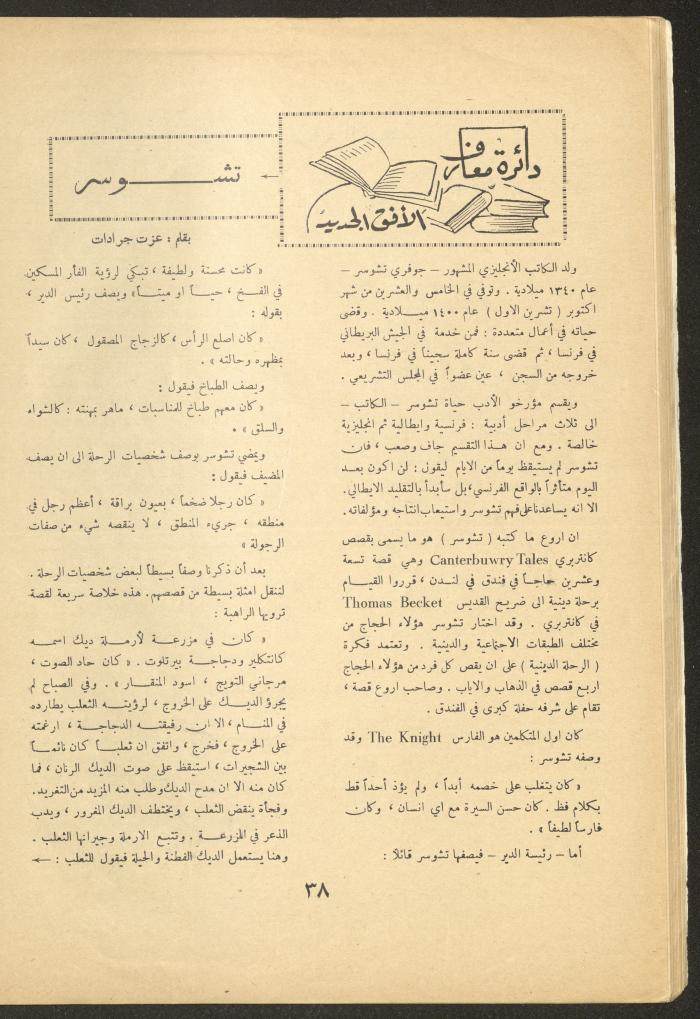 دائرة معارف
الأفق الجديد
تشـــــوسر
بقلم : عزت جرادات
ولد الكاتب الأنجليزي المشهور – جوفري تشوسر –
عام ١٣٤٠ ميلادية . وتوفي في الخامس والعشرين من شهر
اكتوبر ( تشرين الاول ) عام ١٤٠٠ ميلادية . وقضى
حياته في أعمال متعددة : فمن خدمة في الجيش البريطاني
في فرنسا ، ثم قضى سنة كاملة سجيناً في فرنسا ، وبعد
خروجه من السجن ، عين عضواً في المجلس التشريعي .
ويقسم مؤرخو الأدب حياة تشوسر – الكاتب –
الى ثلاث مراحل أدبية : فرنسية وايطالية ثم انجليزية
خالصة . ومع ان هذا التقسيم جاف وصعب ، فان
تشوسر لم يستيقظ يوماً من الايام ليقول : لن اكون بعد
اليوم متأثراً بالواقع الفرنسي، بل سأبدأ بالتقليد الايطالي.
الا انه يساعدنا على فهم تشوسر واستيعاب انتاجه ومؤلفاته.
ان اروع ما كتبه ( تشوسر ) هو ما يسمى بقصص
كانتربري Canterbuwry Tales وهي قصة تسعة
وعشرين حاجاً في فندق في لندن ، قرروا القيام
برحلة دينية الى ضريح القديس Thomas Becket
في كانتربري . وقد اختار تشوسر هؤلاء الحجاج من
مختلف الطبقات الاجتماعية والدينية . وتعتمد فكرة
( الرحلة الدينية ) على ان يقص كل فرد من هؤلاء الحجاج
اربع قصص في الذهاب والاياب . وصاحب اروع قصة ،
تقام على شرفه حفلة كبرى في الفندق .
كان اول المتكلمين هو الفارس The Knight وقد
وصفه تشوسر :
« كان يتغلب على خصمه أبداً ، ولم يؤذ أحداً قط
بكلام فظ . كان حسن السيرة مع اي انسان ، وكان
فارساً لطيفاً » .
أما – رئيسة الدير – فيصفها تشوسر قائلا :
« كانت محسنة ولطيفة ، تبكي لرؤية الفأر المسكين
في الفخ ، حياً او ميتاً » ويصف رئيس الدير ،
بقوله :
« كان اصلع الرأس ، كالزجاج المصقول ، كان سيداً
بمظهره وحالته » .
ويصف الطباخ فيقول :
« كان معهم طباخ للمناسبات ، ماهر بمهنته : كالشواء
والسلق » .
ويمضي تشوسر بوصف شخصيات الرحلة الى ان يصف
المضيف فيقول :
« كان رجلا ضخماً ، بعيون براقة ، أعظم رجل في
منطقه ، جريء المنطق ، لا ينقصه شيء من صفات
الرجولة »
بعد أن ذكرنا وصفاً بسيطاً لبعض شخصيات الرحلة .
لننقل امثلة بسيطة من قصصهم. هذه خلاصة سريعة لقصة
ترويها الراهبة :
« كان في مزرعة لأرملة ديك اسمه
كانتكلير ودجاجة بيرتلوت . « كان حاد الصوت ،
مرجاني التويج ، اسود المنقار » . وفي الصباح لم
يجرؤ الديك على الخروج ، لرؤيته الثعلب يطارده
في المنام ، الا ان رفيقته الدجاجة ، ارغمته
على الخروج ، فخرج ، واتفق ان ثعلباً كان نائماً
بين الشجيرات ، استيقظ على صوت الديك الرنان ، فما
كان منه الا ان مدح الديك وطلب منه المزيد من التغريد.
وفجأة ينقض الثعلب ، ويختطف الديك المغرور ، ويدب
الذعر في المزرعة . وتتبع الارملة وجيرانها الثعلب .
وهنا يستعمل الديك الفطنة والحيلة فيقول للثعلب : ←
٣٨